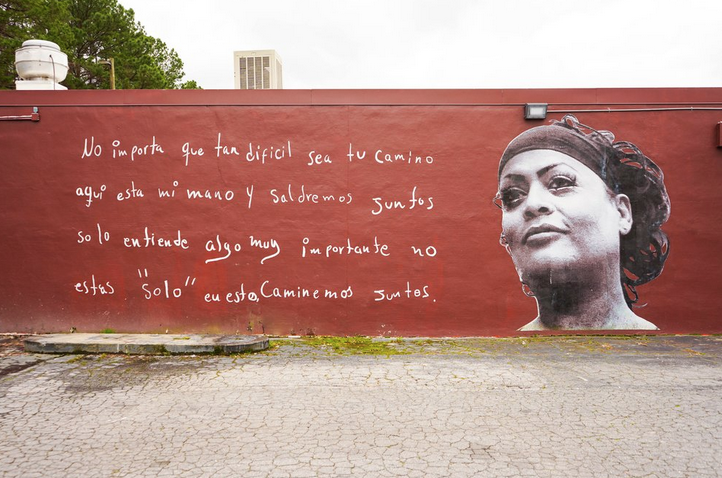 No importa que tan dificil sea tu camino
aqui esta mi mano y saldremos juntos
solo entiende algo muy importante no
estas "solo" en esto, Caminemos juntos.